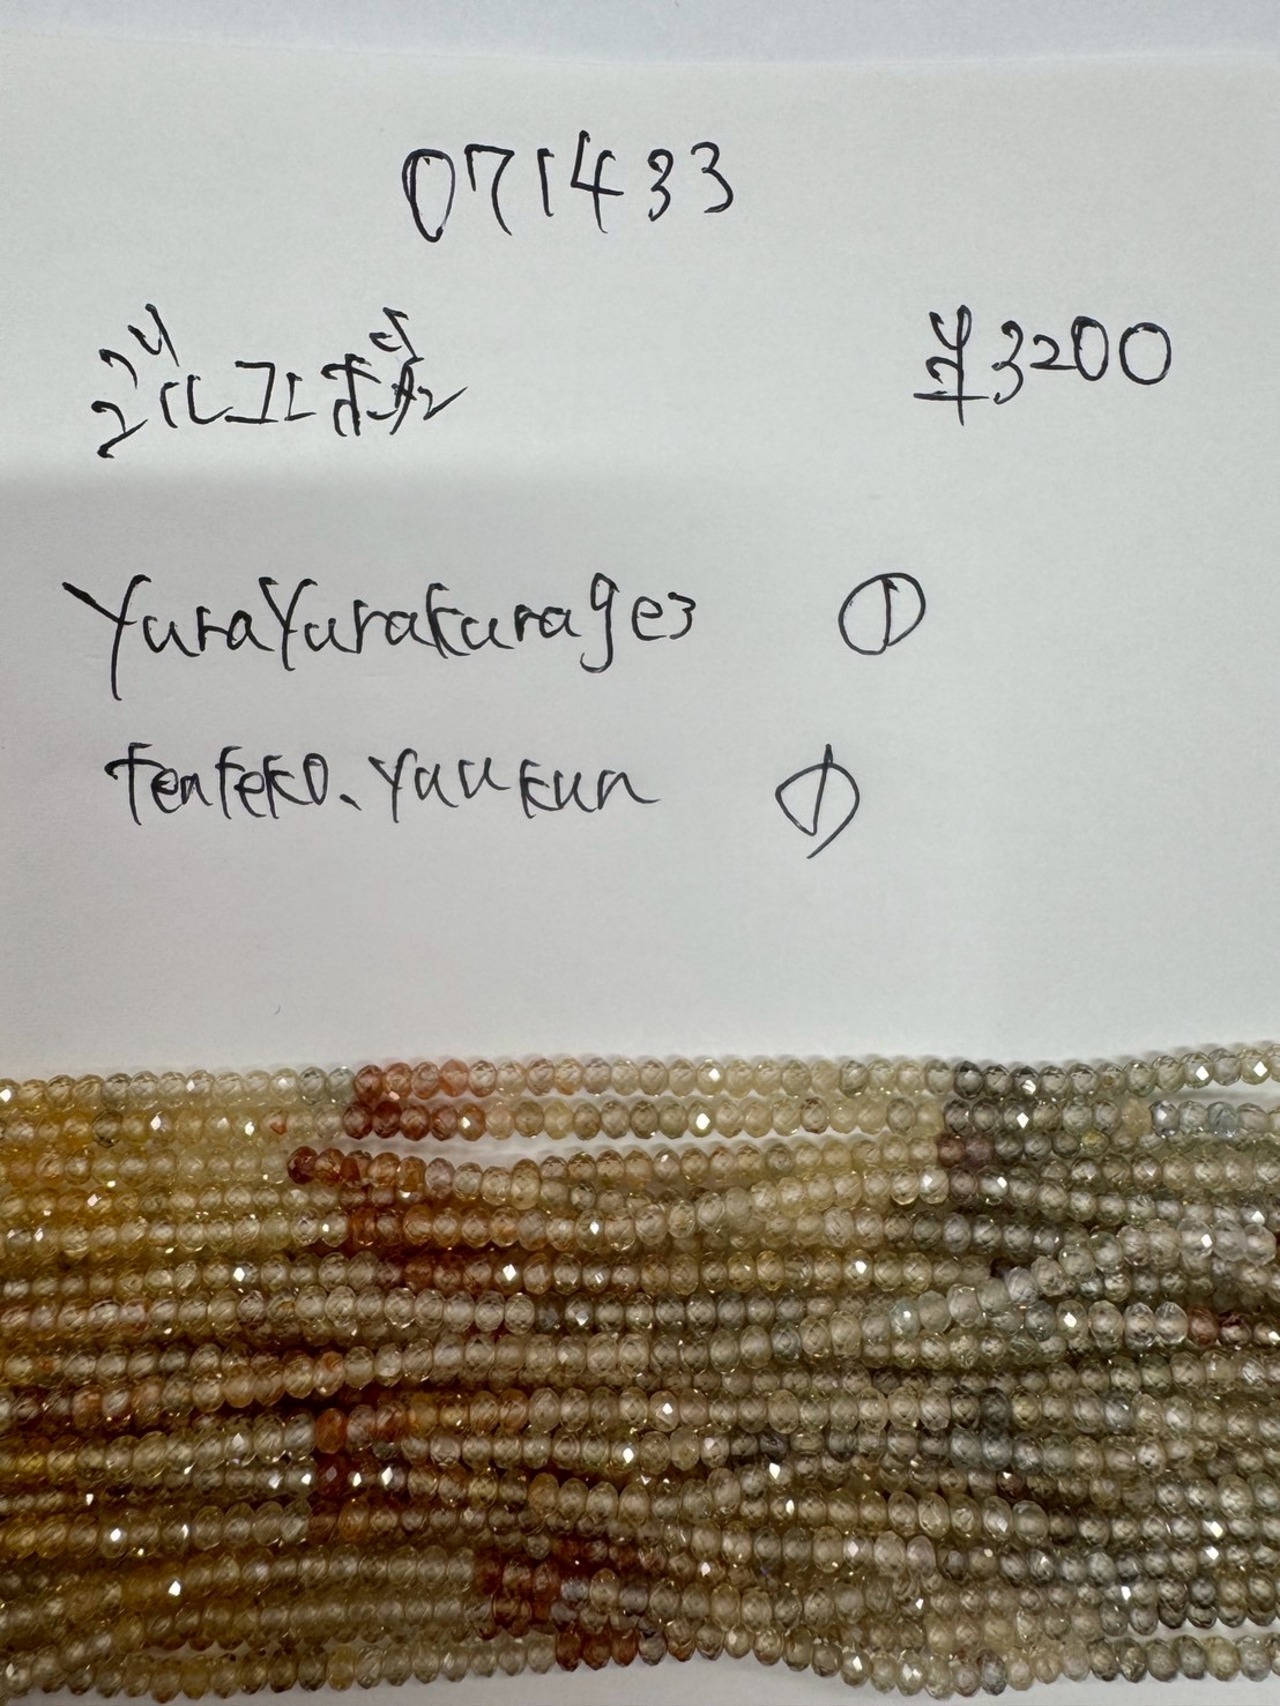 071433
¥3200
YuraYurakurage3 ①
tenteko.yuukun ①